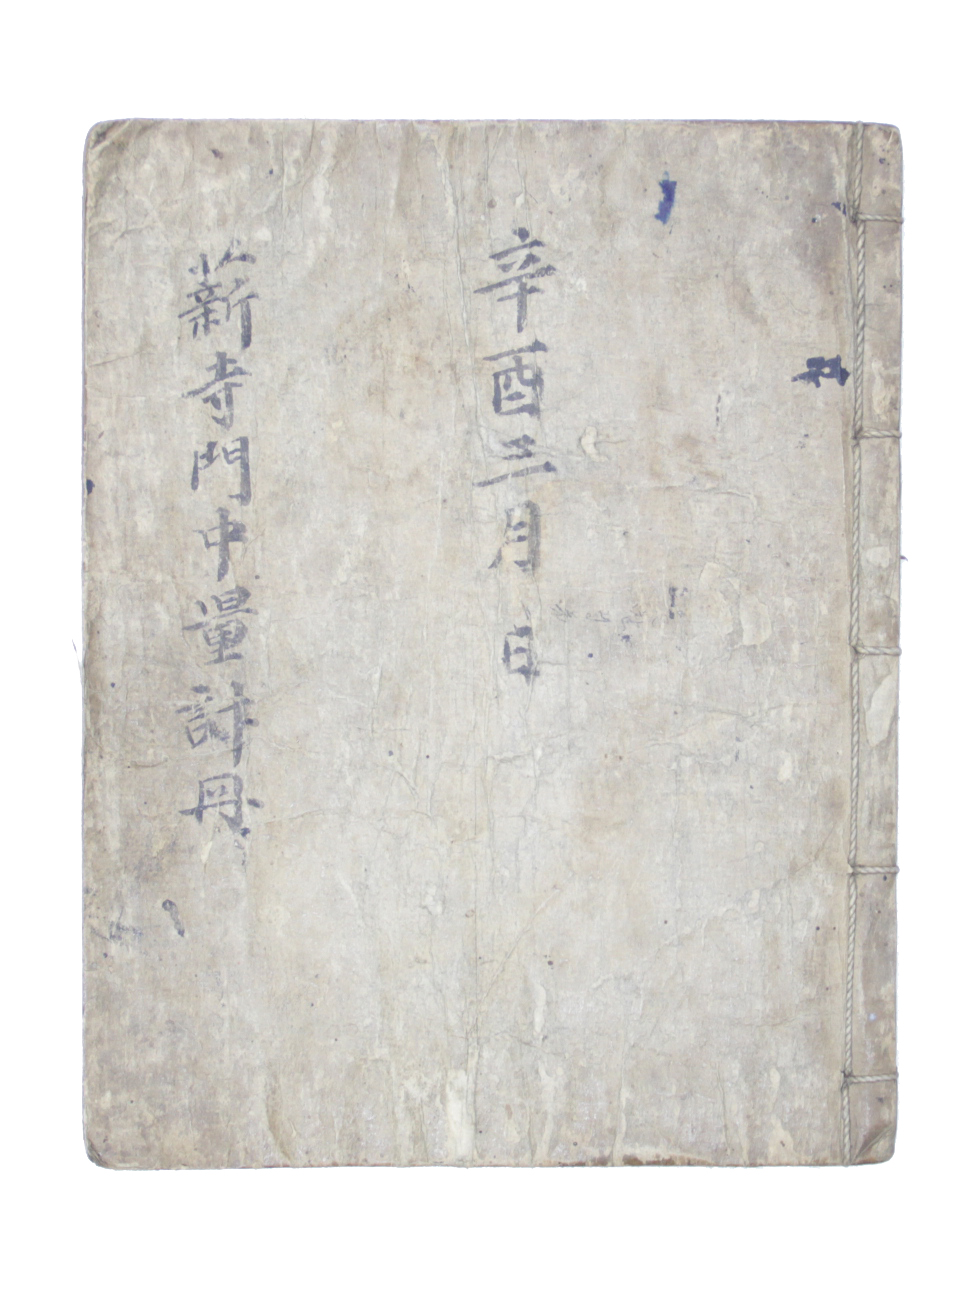 辛酉三月 日
薪寺門中量計冊